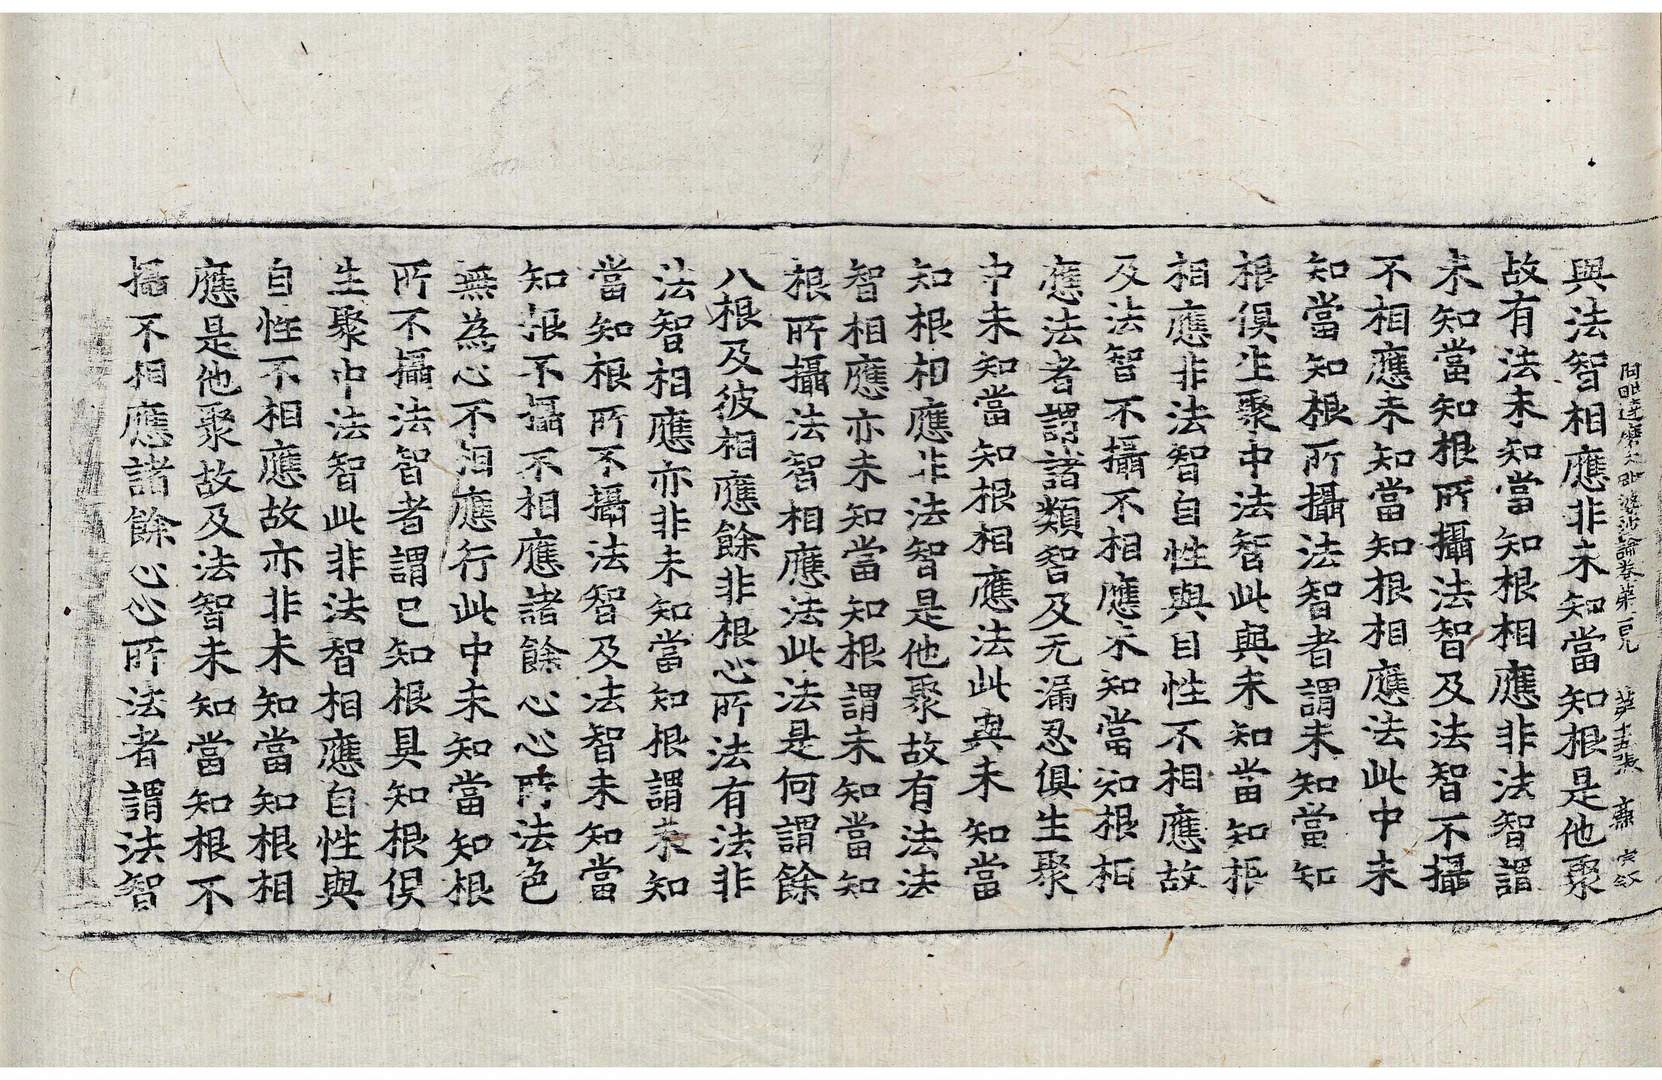 阿毗達磨大毗婆沙論卷第一百九　第十五張
與法智相應非未知當知根是他聚
故有法未知當知根相應非法智謂
未知當知根所攝法智及法智不攝
不相應未知當知根相應法此中未
知當知根所攝法智者謂未知當知
根俱生聚中法智此與未知當知根
相應非法智自性與自性不相應故
及法智不攝不相應未知當知根相
應法者謂諸類智及无漏忍俱生聚
中未知當知根相應法此與未知當
知根相應非法智是他聚故有法法
智相應亦未知當知根謂未知當知
根所攝法智相應法此法是何謂餘
八根及彼相應餘非根心所法有法非
法智相應亦非未知當知根謂未知
當知根所不攝法智及法智未知當
知根不攝不相應諸餘心心所法色
無為心不相應行此中未知當知根
所不攝法智者謂已知根具知根俱
生聚中法智此非法智相應自性與
自性不相應故亦非未知當知根相
應是他聚故及法智未知當知根不
攝不相應諸餘心心所法者謂法智